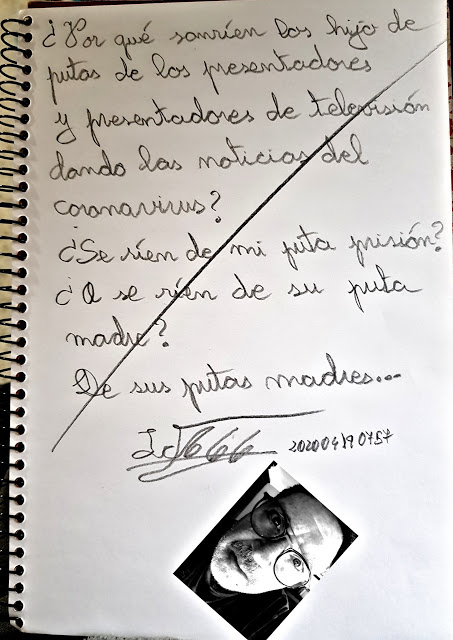 ¿Por qué sonríen los hijo de
putas de los presentadores
y presentadores de televisión
dando las noticias del
coronavirus?
¿Se ríen de mi puta prisión?
¿O se ríen de su puta
madre?
De sus putas madres...
666 202004190757